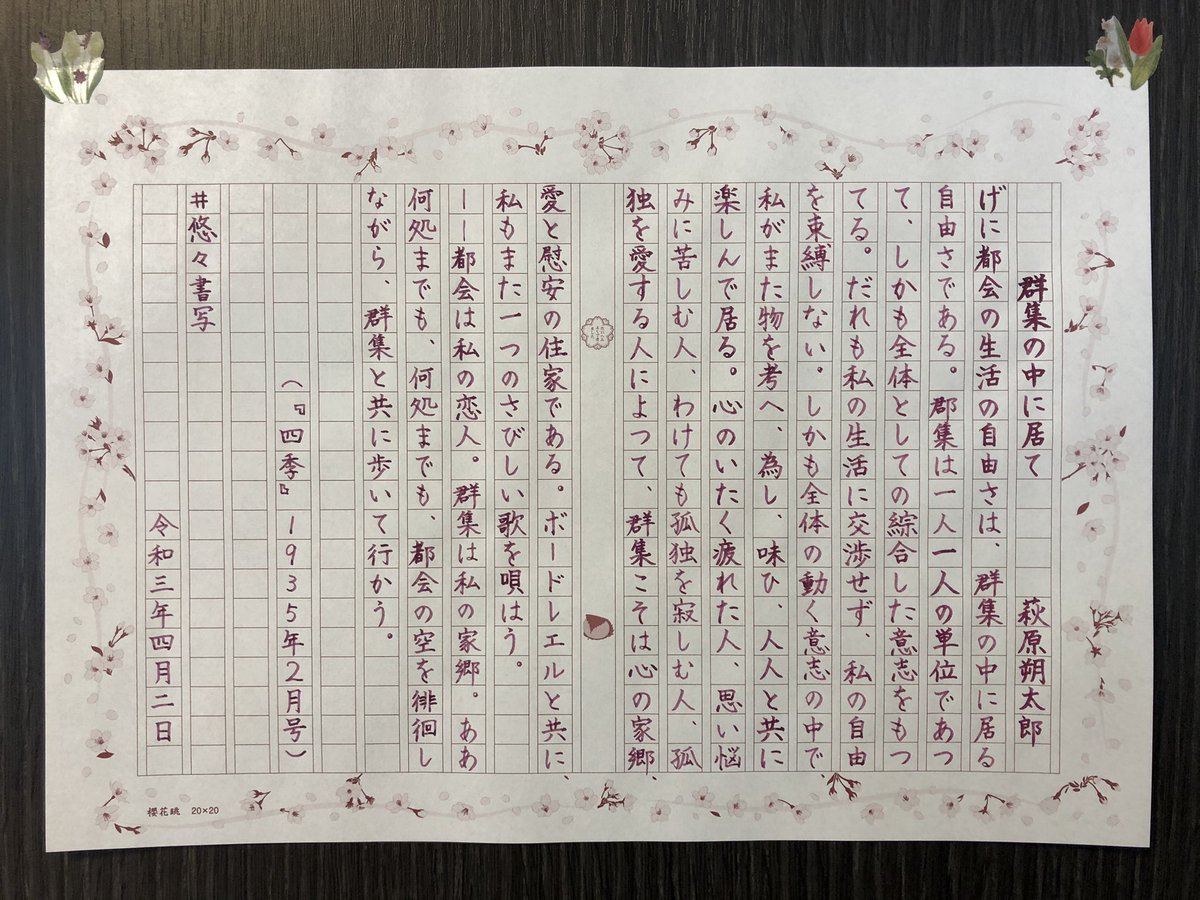 群集の中に居て　萩原朔太郎
げに都会の生活の自由さは、群集の中に居る
自由さである。郡集は一人一人の単位であつ
て、しかも全体としての綜合した意志をもつ
てる。だれも私の生活に交渉せず、私の自由
を束縛しない。しかも全体の動く意志の中で
私がまた物を考へ、為し、味ひ、人人と共に
楽しんで居る。心のいたく疲れた人、思い悩
みに苦しむ人、わけても孤独を寂しむ人、孤
独を愛する人によつて、群集こそは心の家郷、
愛と慰安の住家である。ボードレエルと共に、
私もまた一つのさびしい歌を唄はう。
――都会は私の恋人。群集は私の家郷。ああ
何処までも、何処までも、都会の空を徘徊し
ながら、群集と共に歩いて行かう。
（『四季』1935年2月号）
#悠々書写
令和三年四月二日
櫻花眺 20×20